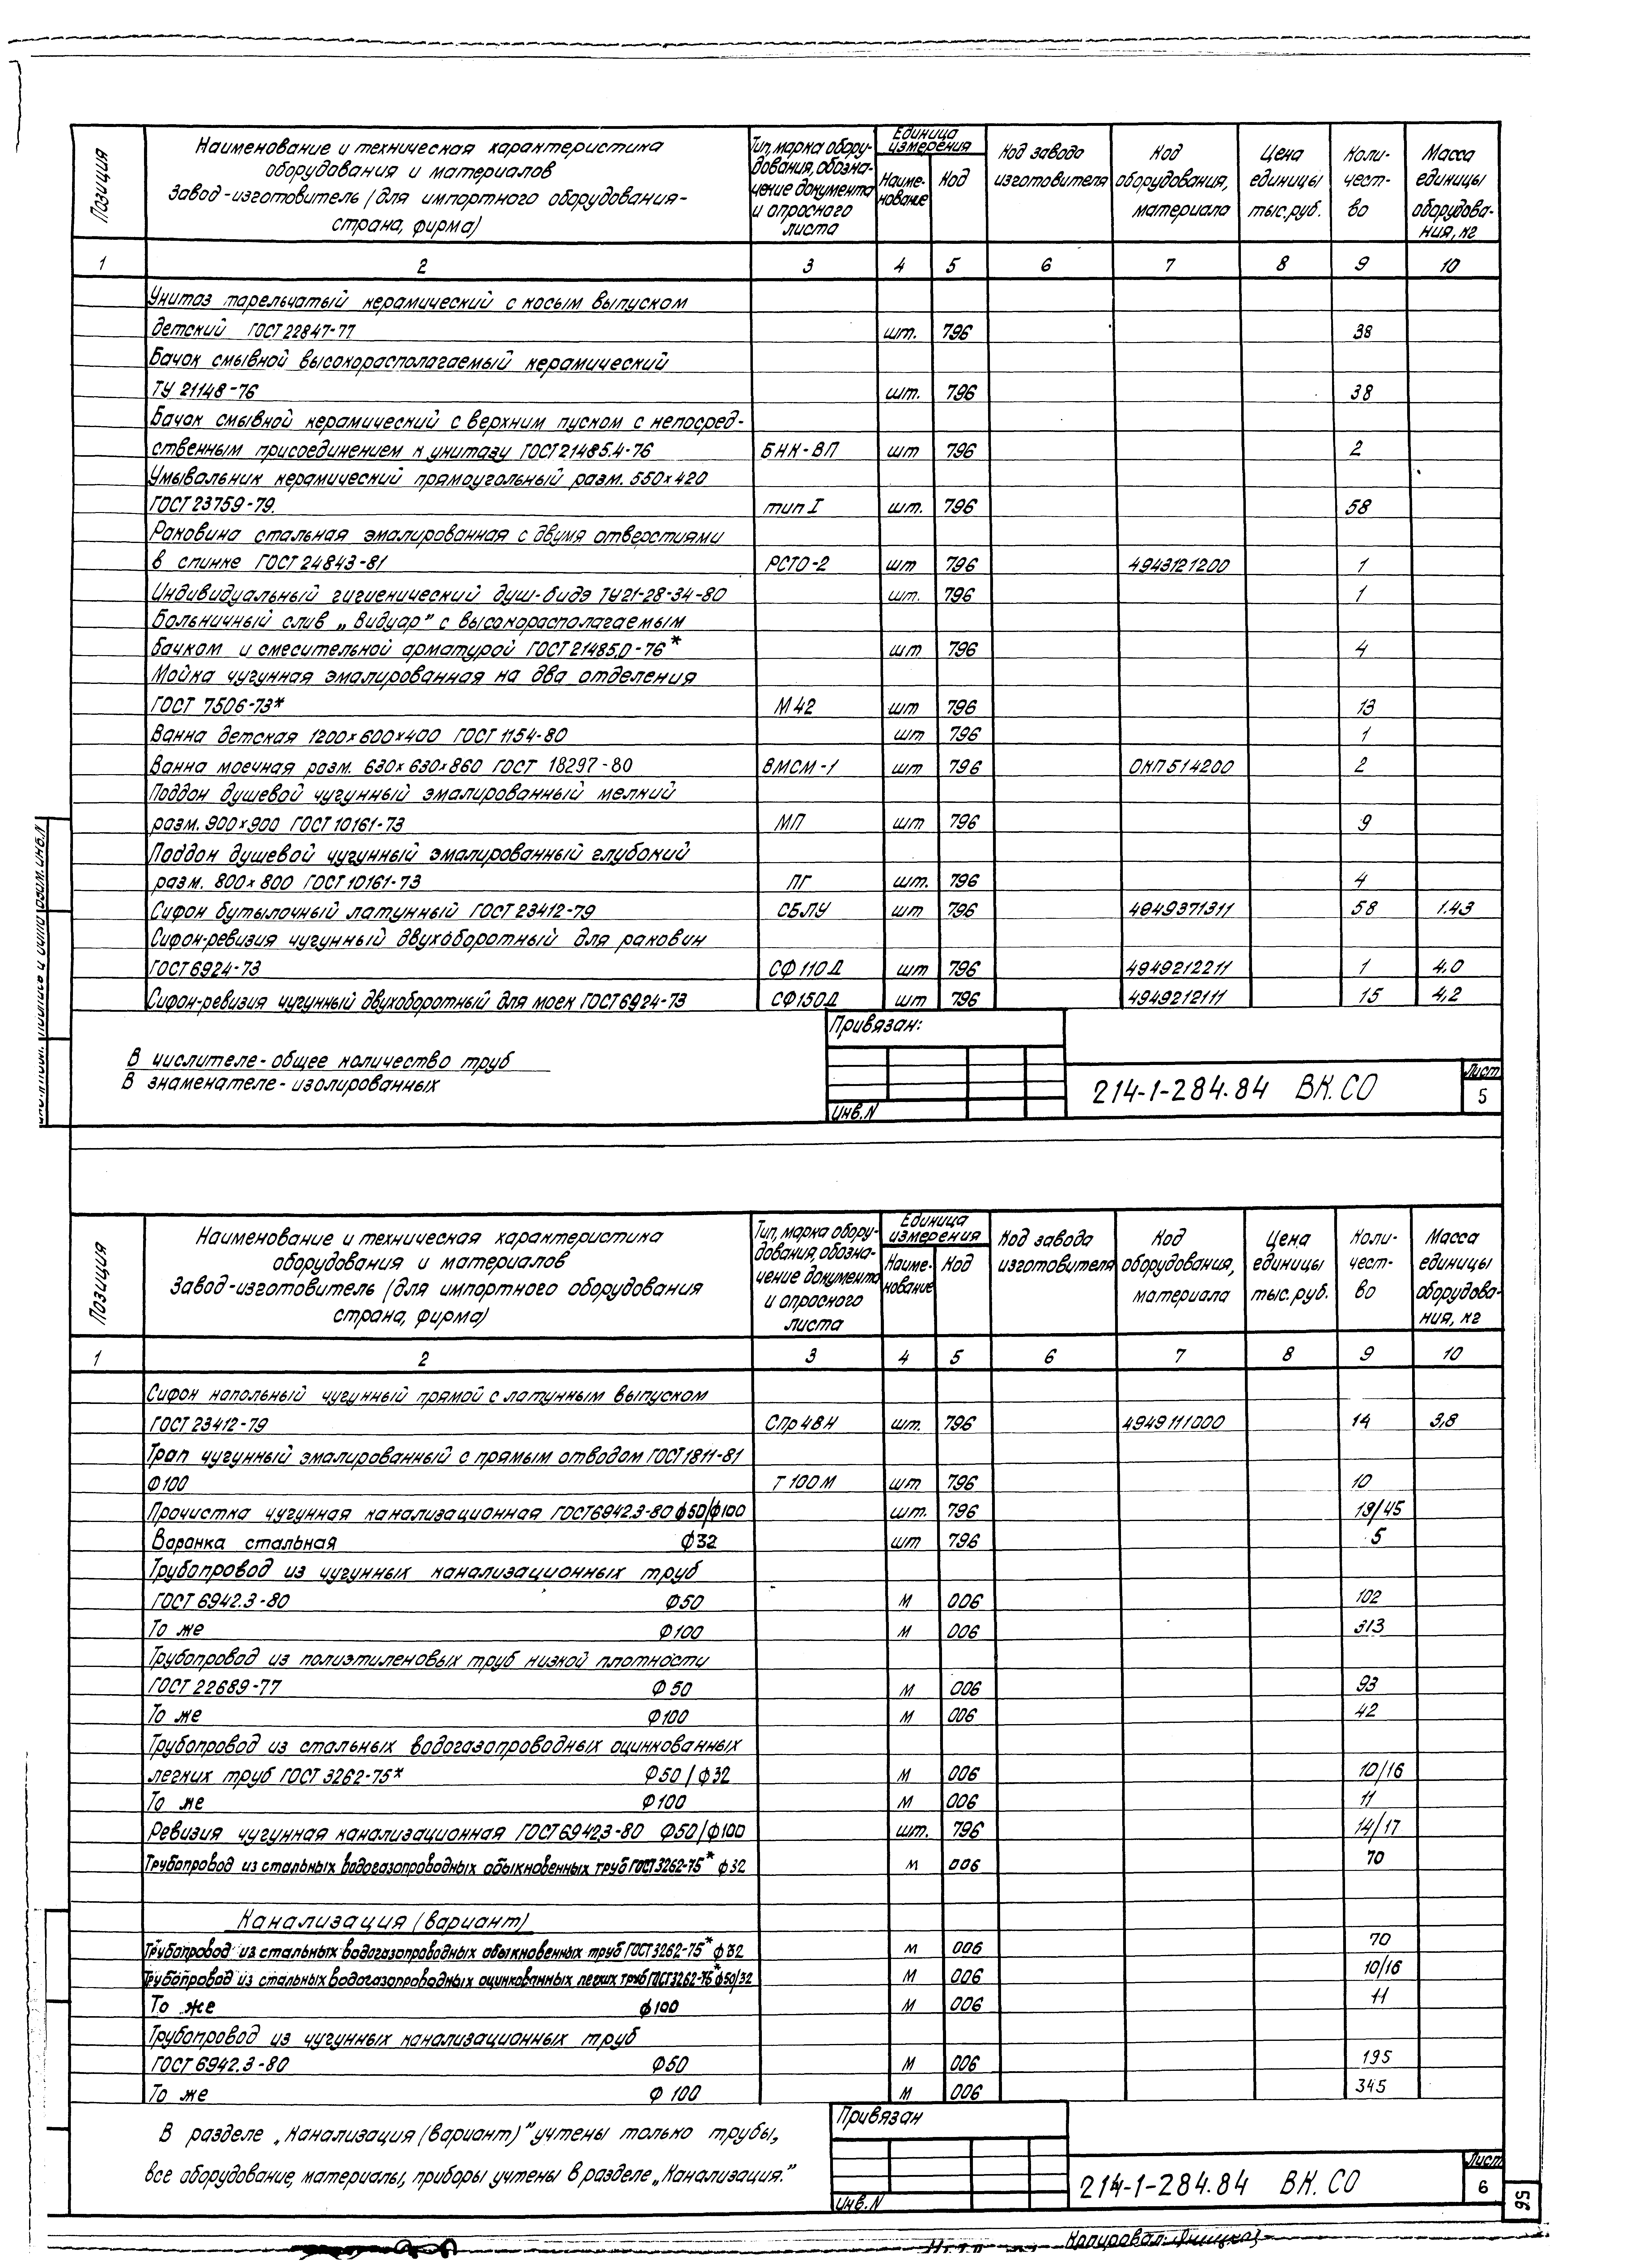 Позиция
Наименование и техническая характеристика
оборудования и материалов
Завод-изготовитель (для импортного оборудования-
страна, фирма)
Тип, марка обору-
дования, обозна-
чение документа
и опросного
листа
Единица
измерения
Наиме-
нование
Код
Код завода
изготовителя
Код
оборудования,
материала
Цена
единицы
тыс.руб.
Коли-
чест-
во
Масса
единицы
оборудова-
ния, кг
1 2 3 4 5 6 7 8 9 10
Унитаз тарельчатый керамический с косым выпуском
детский ГОСТ 22847-77 шт. 796 38
Бачок смывной высокорасполагаемый керамический
ТУ 21148-76 шт. 796 38
Бачок смывной керамический с верхним пуском с непосред-
ственным присоединением к унитазу ГОСТ 21485.4-76 БНК-ВП шт 796 2
Умывальник керамический прямоугольный разм. 550х420
ГОСТ 23759-79. тип I шт. 796 58
Раковина стальная эмалированная с двумя отверстиями
в спинке ГОСТ 24843-81 РСТО-2 шт 796 4943121200 1
Индивидуальный гигиенический душ-бидэ ТУ21-28-34-80 шт. 796 1
Больничный слив „Видуар" с высокорасполагаемым
бачком и смесительной арматурой ГОСТ 21485.0-76* шт 796 4
Мойка чугунная эмалированная на два отделения
ГОСТ 7506-73* М42 шт 796 13
Ванна детская 1200х600х400 ГОСТ 1154-80 шт 796 1
Ванна моечная разм. 630х630х860 ГОСТ 18297-80 ВМСМ-1 шт 796 ОКП514200 2
Поддон душевой чугунный эмалированный мелкий
разм. 900х900 ГОСТ 10161-73 МП шт 796 9
Поддон душевой чугунный эмалированный глубокий
разм. 800х800 ГОСТ 10161-73 ПГ шт. 796 4
Сифон бутылочный латунный ГОСТ 23412-79 СБЛУ шт 796 4949371311 58 1.43
Сифон-ревизия чугунный двухоборотный для раковин
ГОСТ 6924-73 СФ 110Д шт 796 4949212211 1 4,0
Сифон-ревизия чугунный двухоборотный для моек ГОСТ 6924-73 СФ150Д шт 796 4949212111 15 4,2
В числителе - общее количество труб
В знаменателе - изолированных
Привязан:
Инв.N
214-1-284.84 ВК.СО
Лист
5
Позиция
Наименование и техническая характеристика
оборудования и материалов
Завод-изготовитель (для импортного оборудования
страна, фирма)
Тип, марка обору-
дования, обозна-
чение документа
и опросного
листа
Единица
измерения
Наиме-
нование
Код
Код завода
изготовителя
Код
оборудования,
материала
Цена
единицы
тыс. руб.
Коли-
чест-
во
Масса
единицы
оборудова-
ния, кг
1 2 3 4 5 6 7 8 9 10
Сифон напольный чугунный прямой с латунным выпуском
ГОСТ 23412-79 СПр48Н шт. 796 4949111000 14 3,8
Трап чугунный эмалированный с прямым отводом ГОСТ 1811-81
Ф100 Т 100М шт 796 10
Прочистка чугунная канализационная ГОСТ6942.3-80 ф50/ф100 шт. 796 19/45
Воронка стальная ф32 шт 796 5
Трубопровод из чугунных канализационных труб
ГОСТ 6942.3-80 Ф50 м 006 102
То же Ф100 м 006 313
Трубопровод из полиэтиленовых труб низкой плотности
ГОСТ 22689-77 Ф50 м 006 93
То же Ф100 м 006 42
Трубопровод из стальных водогазопроводных оцинкованных
легких труб ГОСТ 3262-75* Ф50/ф32 м 006 10/16
То же Ф100 м 006 11
Ревизия чугунная канализационная ГОСТ 6942.3-80 Ф50/ф100 шт. 796 14/17
Трубопровод из стальных водогазопроводных обыкновенных труб ГОСТ 3262-75* ф32 м 006 70
Канализация (вариант)
Трубопровод из стальных водогазопроводных обыкновенных труб ГОСТ 3262-75* ф32 м 006 70
Трубопровод из стальных водогазопроводных оцинкованных легких труб ГОСТ 3262-75* ф50/32 м 006 10/16
То же ф100 м 006 11
Трубопровод из чугунных канализационных труб
ГОСТ 6942.3-80 Ф50 м 006 195
То же Ф 100 м 006 345
В разделе „Канализация (вариант)" учтены только трубы,
все оборудование, материалы, приборы учтены в разделе „Канализация."
Привязан
Инв.N
214-1-284.84 ВК.СО
Лист
6
56
Копировал: